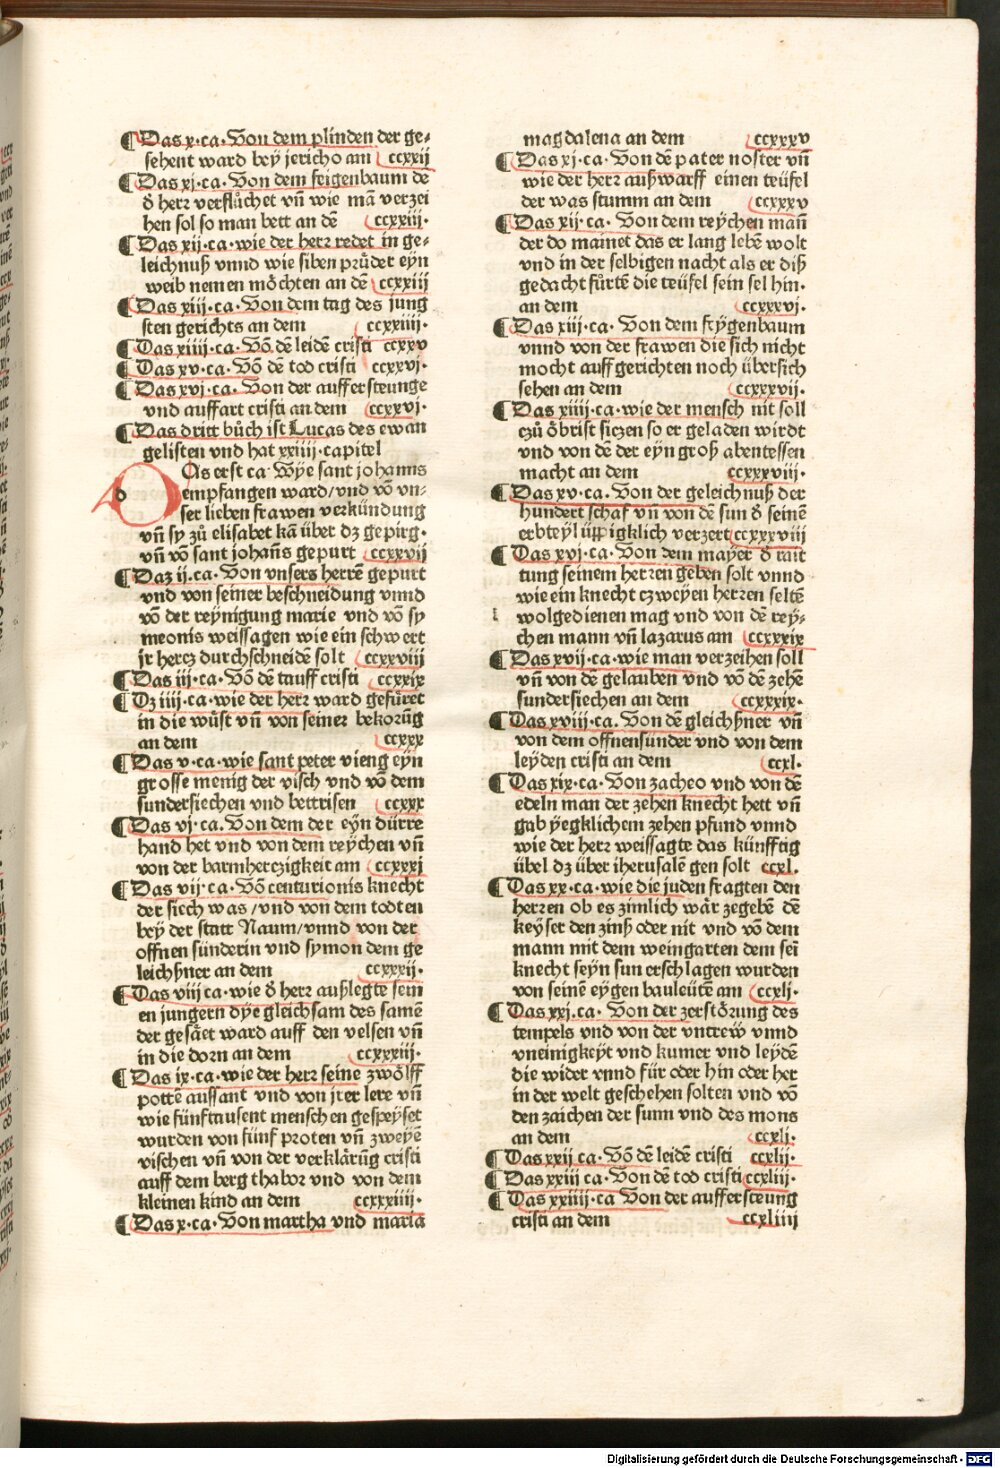 ¶ Das x·ca·Von dem plinden der ge⸗
sehent ward beÿ jericho am ccxxij
¶ Das xj·ca·Von dem feigenbaum dē
d̕ herr verflůchet vn̄ wie mā verzei
hen sol so man bett an dē ccxxiij·
¶ Das xij·ca·wie der herr redet in ge⸗
leichnuß vnnd wie siben průder eÿn
weib nemen mȯchten an dē ccxxiij
¶ Das xiij·ca·Von dem tag des jung
sten gerichts an dem ccxxiiij·
¶ Das xiiij·ca·Vō dē leidē cristi ccxxv
¶ Das xv·ca·Vō dē tod cristi ccxxvj·
¶ Das xvj·ca.Von der auffersteunge
vnd auffart cristi an dem ccxxvj·
¶ Das dritt bůch ist Lucas des ewan
gelisten vnd hat xxiiij·capitel
d As erst ca·Wÿe sant johanns
empfangen ward/vnd vō vn⸗
ser lieben frawen verkündung
vn̄ sy zů elisabet kā über dz gepirg·
vn̄ vō sant johan̄s gepurt ccxxvij
¶ Daz ij.ca·Von vnsers herrē gepurt
vnd von seiner beschneidung vnnd
vō der reÿnigung marie vnd vō sy
meonis weissagen wie ein schwert
jr hercz durchschneidē solt ccxxviij
¶ Das iij·ca·Vō dē tauff cristi ccxxix
¶ Dz iiij·ca·wie der herr ward gefůret
in die wůst vn̄ von seiner bekorūg
an dem ccxxx
¶ Das v·ca·wie sant peter vieng eÿn
grosse menig der visch vnd vō dem
sundersiechen vnd bettrisen ccxxx
¶ Das vj·ca.Von dem der eÿn dürre
hand het vnd von dem reÿchen vn̄
von der barmherczigkeit am ccxxxj
¶ Das vij·ca·Vō centurionis knecht
der siech was/vnd von dem todten
beÿ der statt Naum/vnnd von der
offnen sünderin vnd symon dem ge
leichßner an dem ccxxxij·
¶ Das viij ca·wie d̕ herr außlegte sein
en jungern dÿe gleichsam des samē
der gesäet ward auff den velsen vn̄
in die dorn an dem ccxxxiij·
¶ Das ix·ca·wie der herr seine zwȯlff
pottē aussant vnd von jrer lere vn̄
wie fünftausent menschen gespeÿset
wurden von fünf proten vn̄ zweÿē
vischen vn̄ von der verklärūg cristi
auff dem berg thabor vnd von dem
kleinen kind an dem ccxxxiiij·
¶ Das x·ca·Von martha vnd maria
magdalena an dem ccxxxv
¶ Das xj·ca·Von dē pater noster vn̄
wie der herr außwarff einen teüfel
der was stumm an dem ccxxxv
¶ Das xij·ca·Von dem reÿchen man̄
der do mainet das er lang lebē wolt
vnd in der selbigen nacht als er diß
gedacht fůrtē die teüfel sein sel hin·
an dem ccxxxvj·
¶ Das xiij·ca·Von dem feÿgenbaum
vnnd von der frawen die sich nicht
mocht auff gerichten noch übersich
sehen an dem ccxxxvij·
¶ Das xiiij·ca·wie der mensch nit soll
czů ȯbrist siczen so er geladen wirdt
vnd von dē der eÿn groß abentessen
macht an dem ccxxxviij·
¶ Das xv·ca·Von der geleichnuß der
hundert schaf vn̄ von dē sun d̕ seinē
erbteÿl üppigklich verzert ccxxxviij
¶ Das xvj·ca·Von dem mayer d̕ rait
tung seinem herren geben solt vnnd
wie ein knecht czweÿen herren seltē
wolgedienen mag vnd von dē reÿ⸗
chen mann vn̄ lazarus am ccxxxix
¶ Das xvij·ca·wie man verzeihen soll
vn̄ von dē gelauben vnd vō dē zehē
sundersiechen an dem ccxxxix·
¶ Das xviij·ca.Von dē gleichßner vn̄
von dem offnensünder vnd von dem
leÿden cristi an dem ccxl·
¶ Das xix·ca·Von zacheo vnd von dē
edeln man der zehen knecht hett vn̄
gab ÿegklichem zehen pfund vnnd
wie der herr weissagte das künfftig
übel dz über iherusalē gen solt ccxl.
¶ Das xx·ca·wie die juden fragten den
herren ob es zimlich wär zegebē dē
keÿser den zinß oder nit vnd vō dem
mann mit dem weingarten dem sei
knecht seÿn sun erschlagen wurden
von seinē eÿgen bauleütē am ccxlj·
¶ Das xxj.ca·Von der zerstȯrung des
tempels vnd von der vntreẅ vnnd
vneinigkeÿt vnd kumer vnd leÿdē
die wider vnnd für oder hin oder her
in der welt geschehen solten vnd vō
den zaichen der sunn vnd des mons
an dem ccxlj·
¶ Das xxij ca·Vō dē leidē cristi ccxlij·
¶ Das xxiij ca·Von dē tod cristi ccxliij·
¶ Das xxiiij·ca Von der auffersteung
cristi an dem ccxliiij
Digitalisierung gefördert durch die Deutsche Forschungsgemeinschaft · DFG